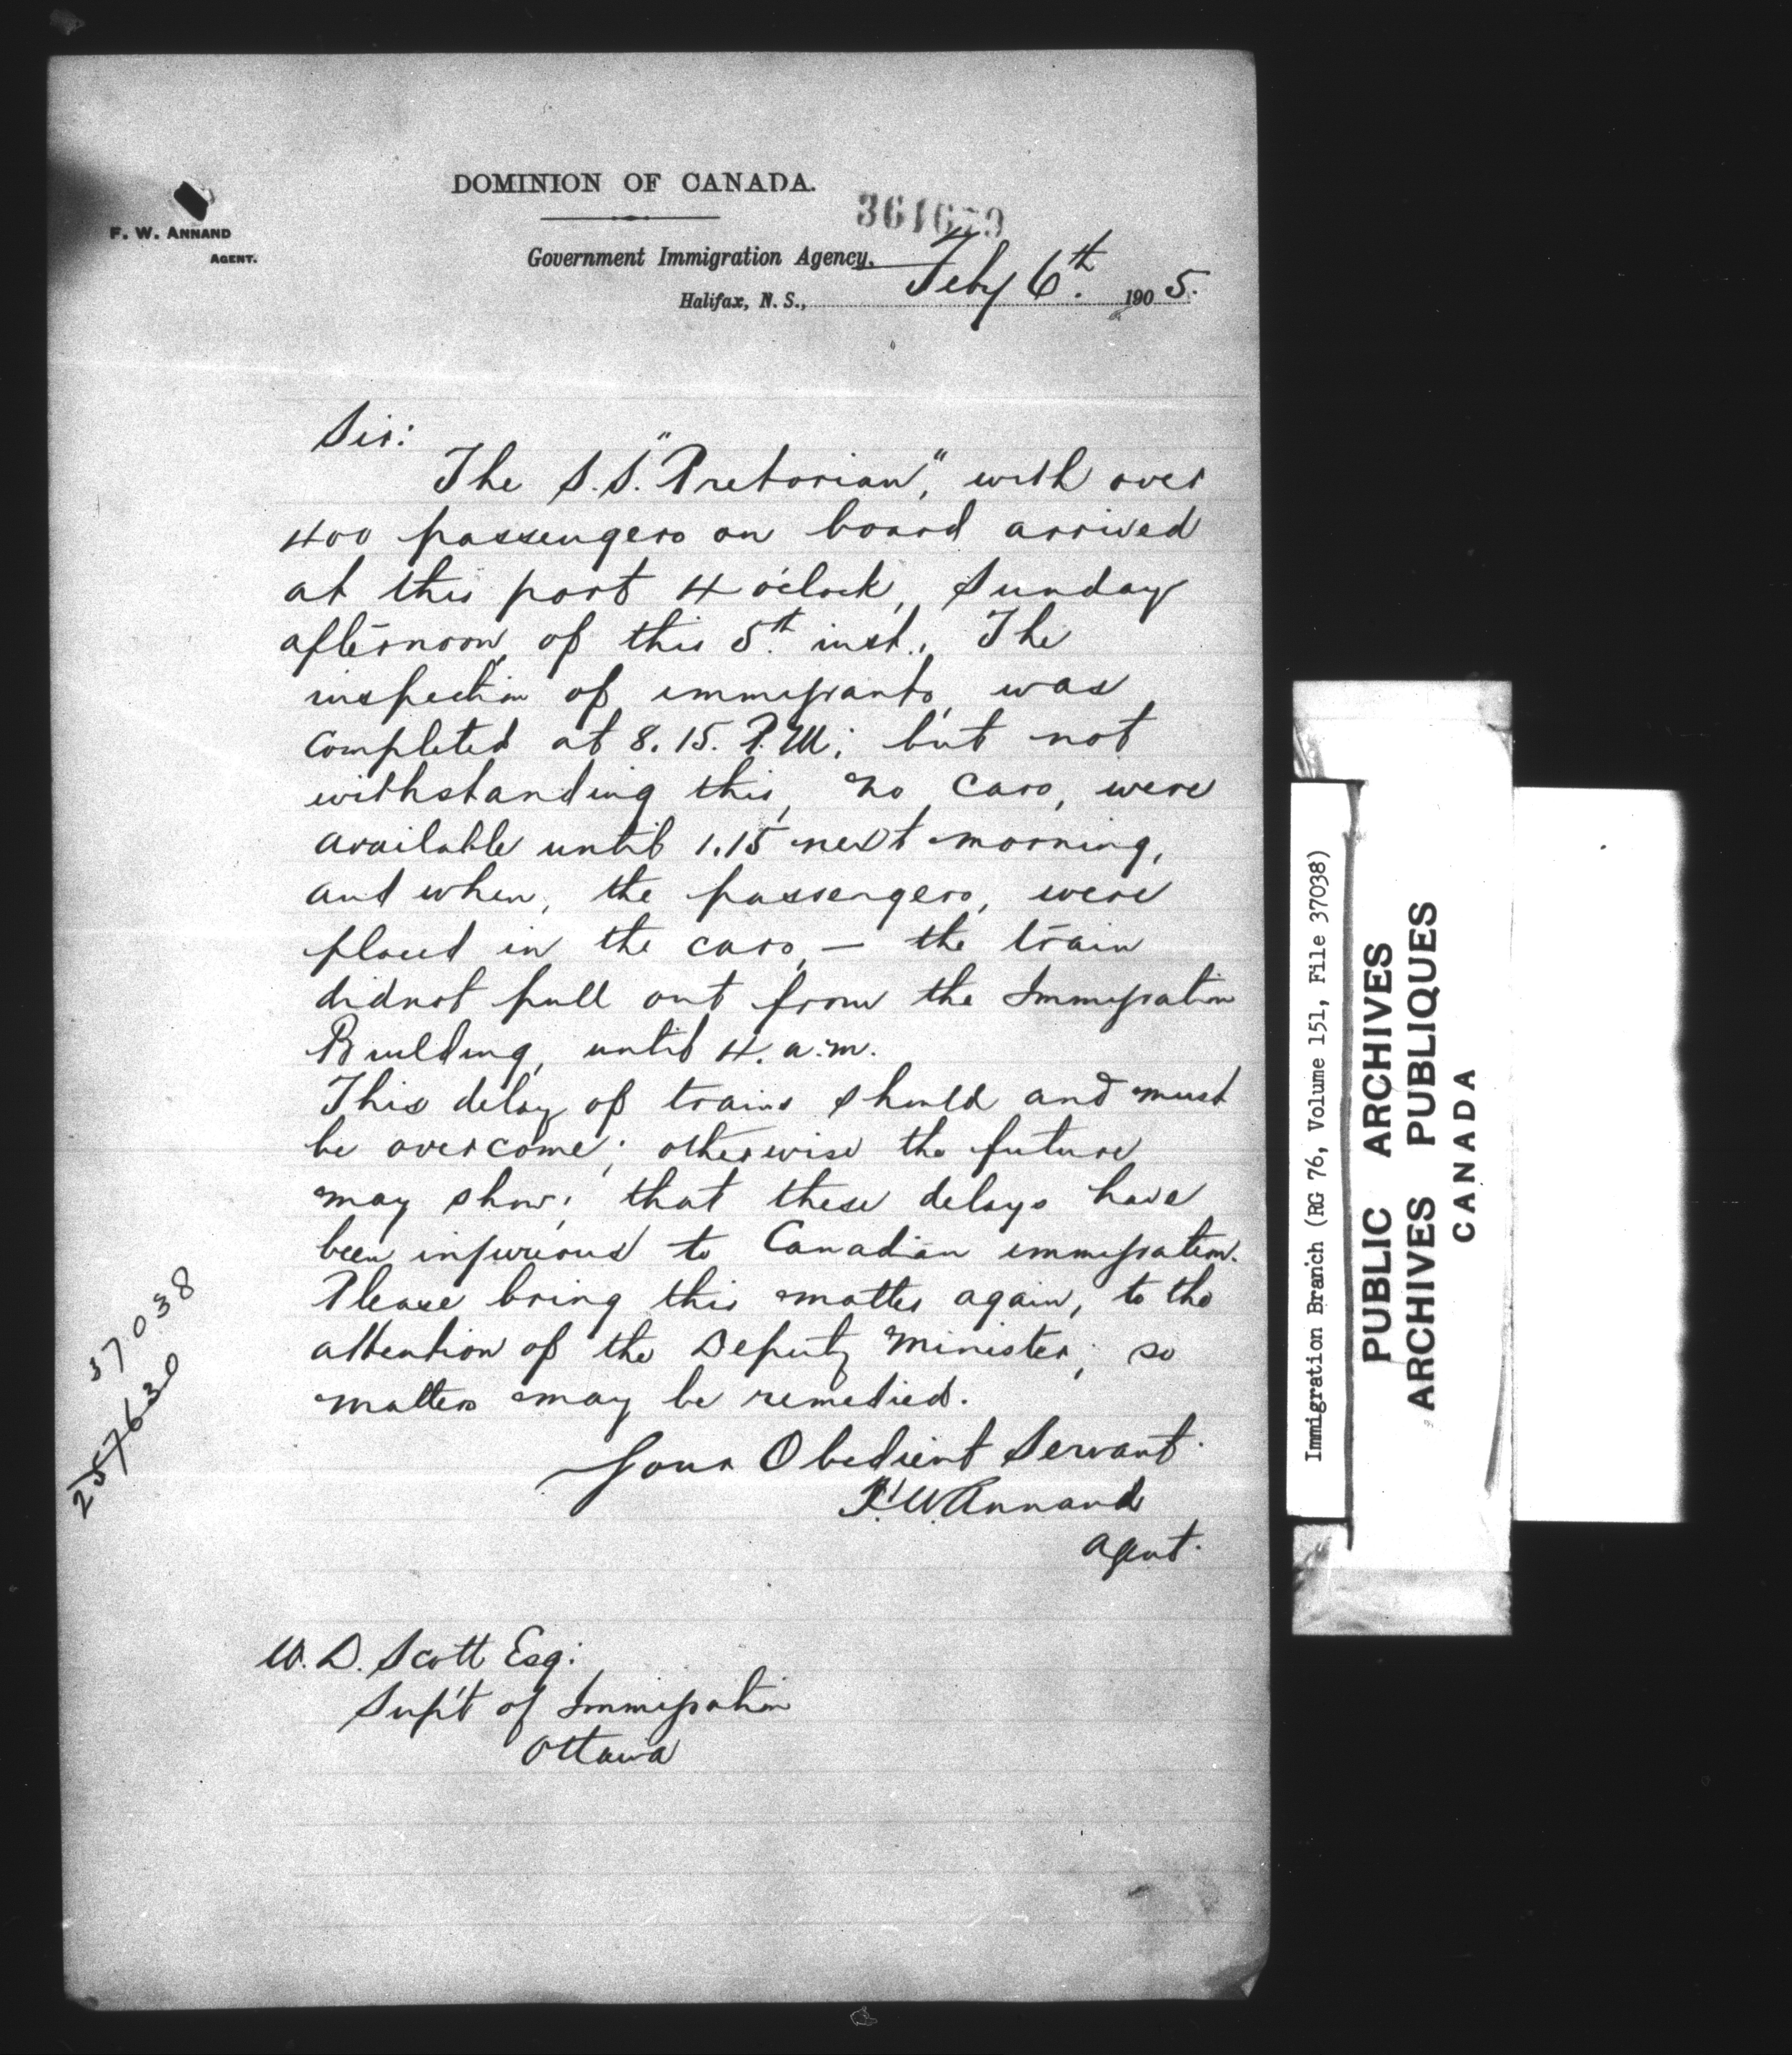 DOMINION OF CANADA.
364679
F. W. ANNAND
AGENT.
Government Immigration Agency,
Halifax, N. S., Feby 6th. 1905.
Sir:
The S.S. "Pretorian", with over
400 passengers on board arrived
at this port 4 o'clock, Sunday
afternoon, of this 5th inst., The
inspection of immigrants, was
completed at 8.15. P.M; but not
withstanding this, no cars, were
available until 1.15 next morning,
and when, the passengers, were
placed in the cars, — the train
did not pull out from the Immigration
Building, until 4. a.m.
This delay of trains should and must
be overcome; otherwise the future
may show; that these delays have
been injurious to Canadian immigration.
Please bring this matter again, to the
attention of the Deputy Minister; so
matters may be remedied.
Your Obedient Servant.
F. W. Annand
Agent.
W. D. Scott Esq:
Sup't of Immigration
Ottawa
37038
257630
Immigration Branch (RG 76, Volume 151, File 37038)
PUBLIC ARCHIVES
ARCHIVES PUBLIQUES
CANADA